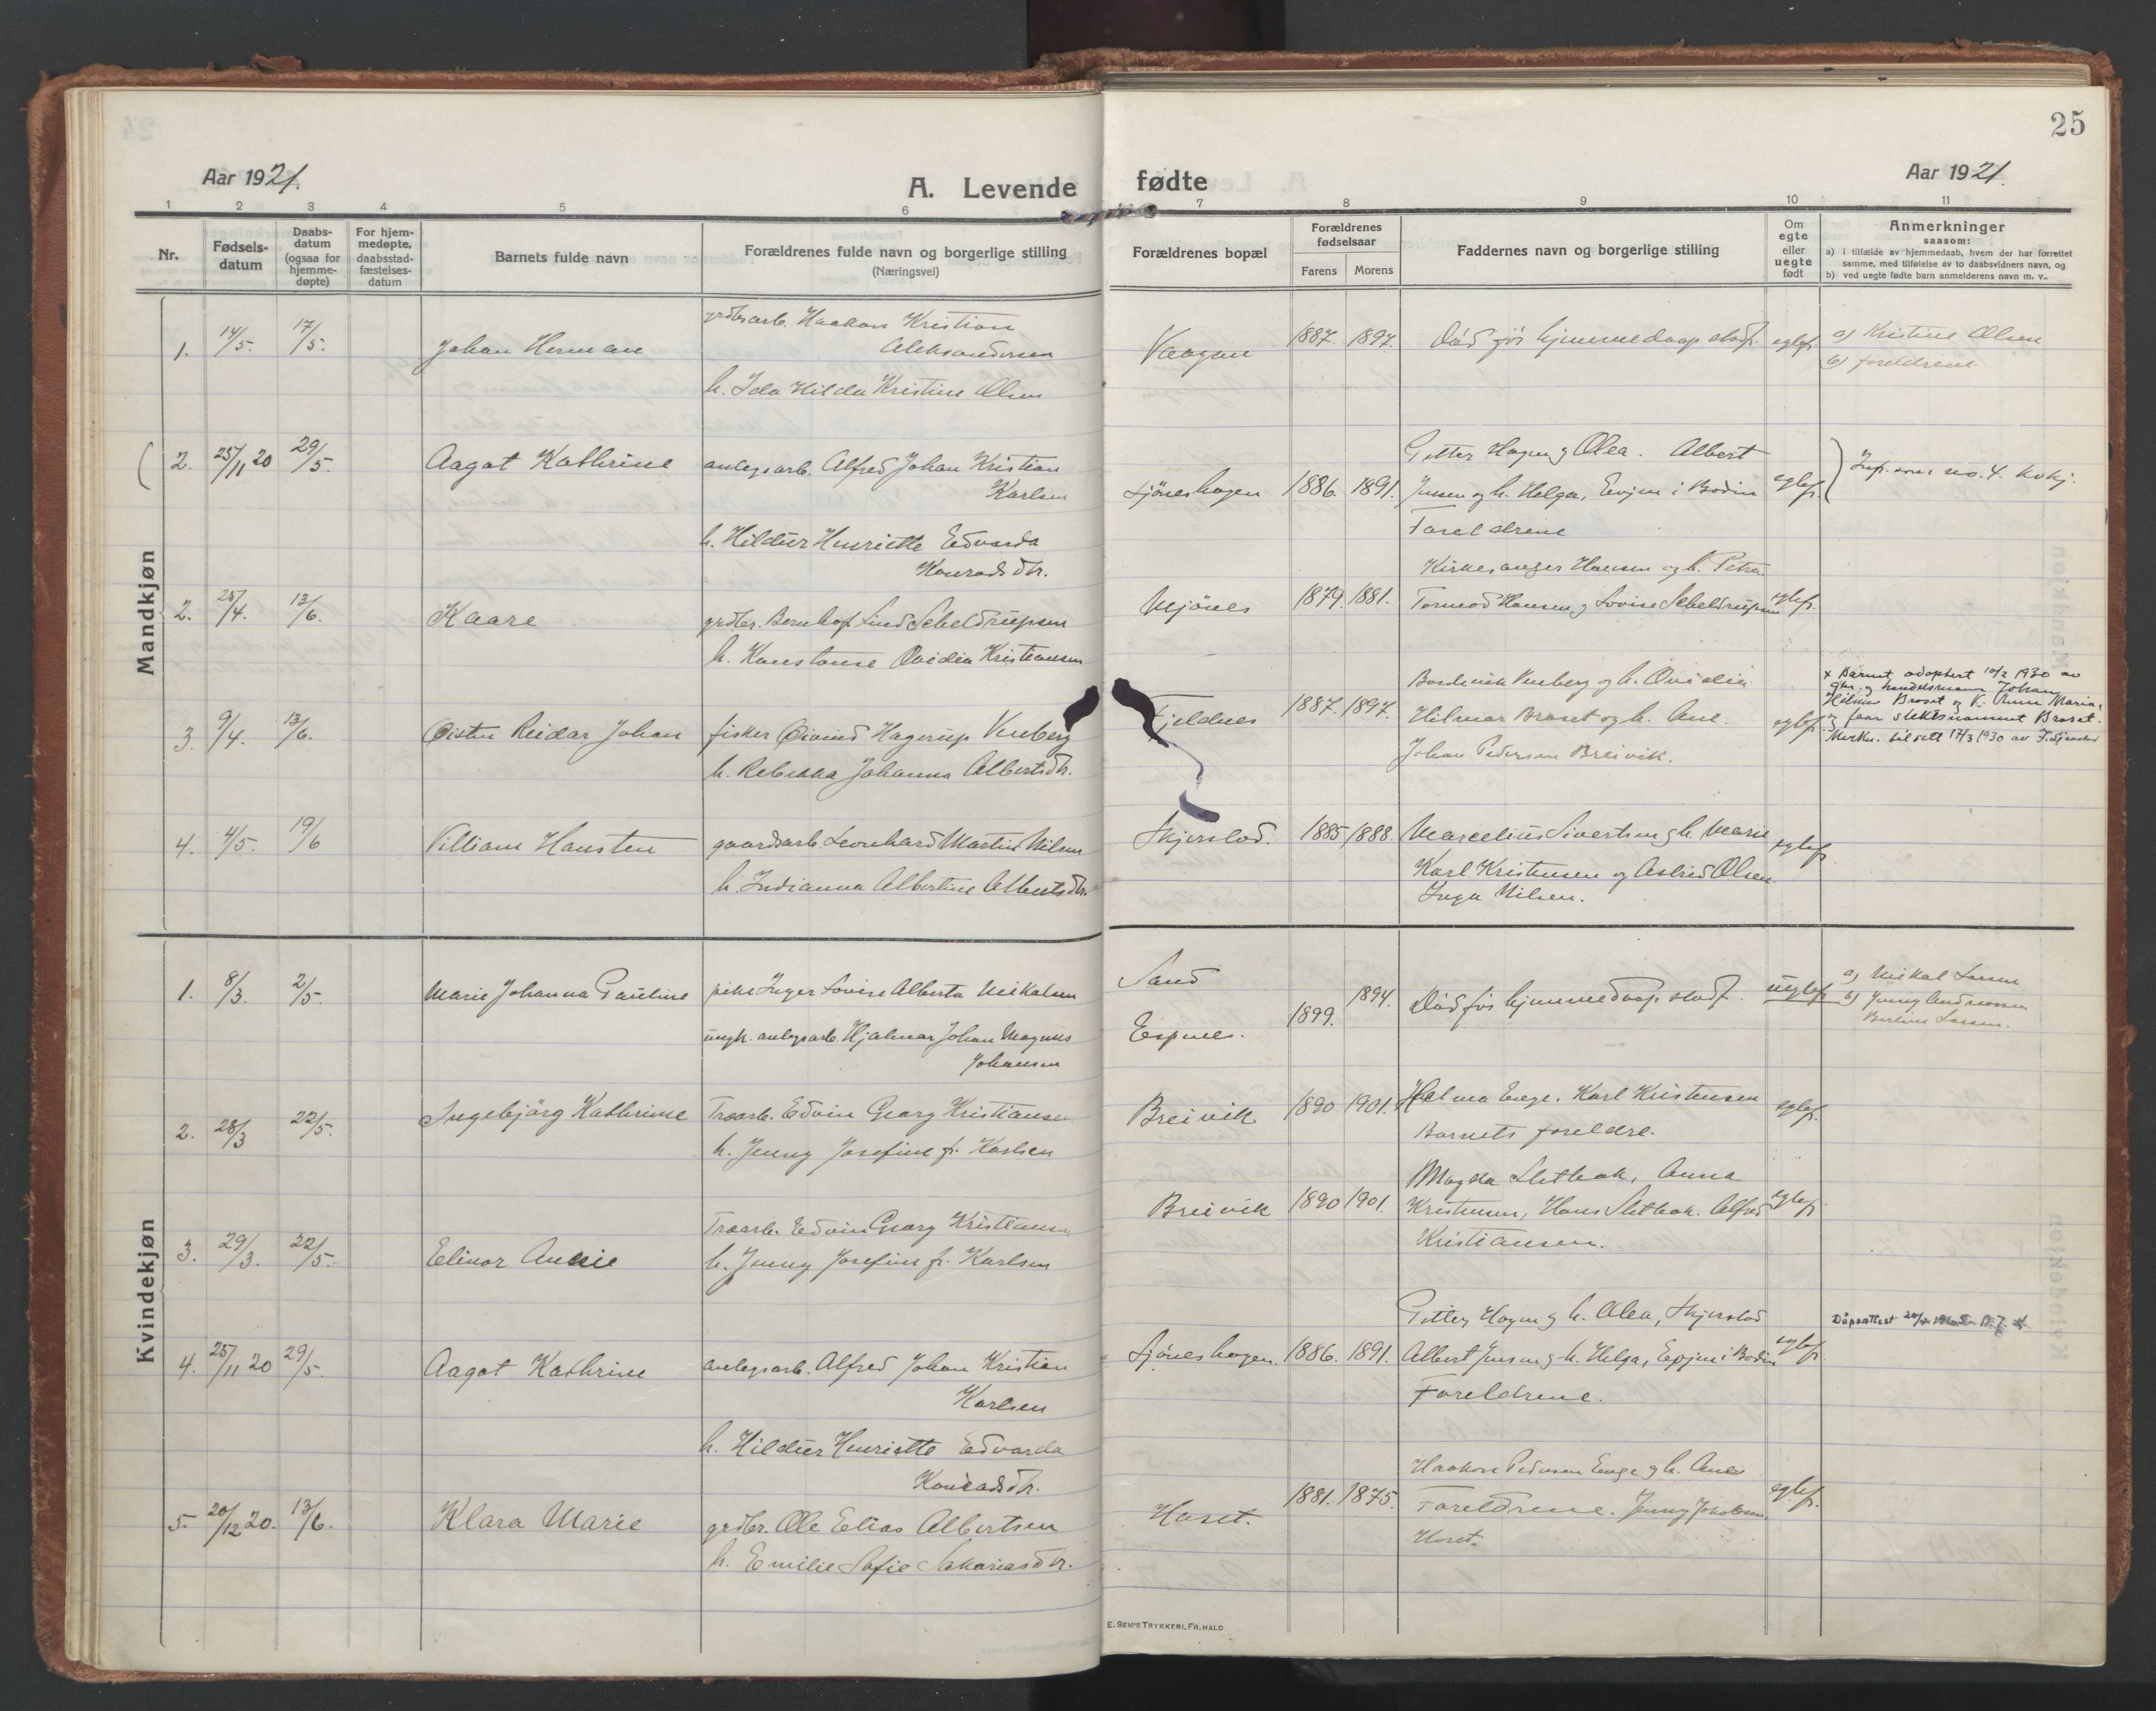 25
Aar 1921.
A. Levende fødte
Aar 1921.
1 2 3 4 5 6 7 8 9 10 11
Nr.
Fødsels-
datum
Daabs-
datum
(ogsaa for
hjemme-
døpte)
For hjem-
medøpte,
daabsstad-
fæstelses-
datum
Barnets fulde navn
Forældrenes fulde navn og borgerlige stilling
(Næringsvei)
Forældrenes bopæl
Forældrenes
fødselsaar
Farens Morens
Faddernes navn og borgerlige stilling
Om
egte
eller
uegte
født
Anmerkninger
saasom:
a) i tilfælde av hjemmedaab, hvem der har forrettet
samme, med tilføielse av to daabsvidners navn, og
b) ved uegte fødte barn anmelderens navn m. v..
Mandkjøn
1. 14/5. 17/5. Johan Herman
grdbrarb. Haakon Kristian
Aleksandersen
h. Ida Hilda Kristine Olsen
Vaagan 1887. 1897. Död för hjemmedaap stadf. egtef.
a) Kristine Olsen
b) foreldrene.
2. 25/11 20 29/5. Aagot Kathrine
anlegsarb. Alfred Johan Kristian
Karlsen
h. Hildur Henriette Edvarda
Konradsdtr.
1886. 1891.
Petter Hagen og Olea. Albert
Jensen og h. Helga, Evjen i Bodin
Foreldrene
egtef.
Inf. som no. 4. kvkj.
2. 25/4. 13/6. Kaare
grdbr. Bernhof Lund Scheldrupsen
h. Konstanse Ovidia Kristiansen
Mjönes 1879. 1881.
Kirkesanger Hansen og h. Petra
Tormod Hansen og Lovise Scheldrupsen
egtef.
3. 9/4. 13/6. Öisten Reidar Johan
fisker Öivind Hagerup Venberg
h. Rebekka Johanna Albertsdtr.
Fjeldnes 1887. 1897.
Benberg og h. Ovidia
Hilmar Broset og h. Ane.
Johan Pedersen Breivik.
egtef.
x Barnet adoptert 10/2 1930 av
gbr. og handelsmann Johan
Hilmar Broset og h. Anne Maria,
og faar slektsnavnet Broset.
Merkn. tilsett 17/3 1930 av
4. 4/5. 19/6 Villiam Hansten
gaardsarb. Leonhard Martin Nilsen
h. Indianna Albertine Albertsdtr.
Skjerstad. 1885 1888.
Marcelius Sivertsen og h. Marie
Karl Kristensen og Astrid Olsen
Inga Nilsen.
egtef.
Kvindekjøn
1. 8/3. 2/5. Marie Johanna Pauline
pike Inger Lovise Alberta Mikalsen
ungk. anlegsarb. Hjalmar Johan Magnus
Johansen
Sand
Espnes.
1899. 1894.
Död för hjemmedaap stadf. uegtef.
a) Mikal Larsen
b) Jenny Andreassen
Berline Larsen.
2. 28/3 22/5. Ingebjörg Kathrine
Traarb. Edvin Georg Kristiansen
h. Jenny Josefine f. Karlsen
Breivik 1890 1901.
Halma Enge. Karl Kristensen
Barnets foreldre.
egtef.
3. 29/3. 22/5. Elinor Annie
Traarb. Edvin Georg Kristiansen
h. Jenny Josefine f. Karlsen
Breivik 1890 1901.
Magda Sletbak, Anna
Kristensen, Hans Sletbak. Alfred
Kristiansen.
egtef.
4. 25/11 20 29/5. Aagot Kathrine
anlegsarb. Alfred Johan Kristian
Karlsen
h. Hildur Henriette Edvarda
Konradsdtr.
1886. 1891.
Petter Hagen og h. Olea, Skjerstad
Albert Jensen og h. Helga, Evjen i Bodin
Foreldrene.
egtef.
Dåpsattest
5. 20/12 20. 13/6. Klara Marie
grdbr. Ole Elias Albertsen
h. Emilie Sofie Sakariasdtr.
Hoset. 1881. 1875.
Haakon Pedersen Enge og h. Anna
Foreldrene. Jenny Jakobsen
Hoset.
egtef.
E. SEM'S TRYKKERI, FR. HALD